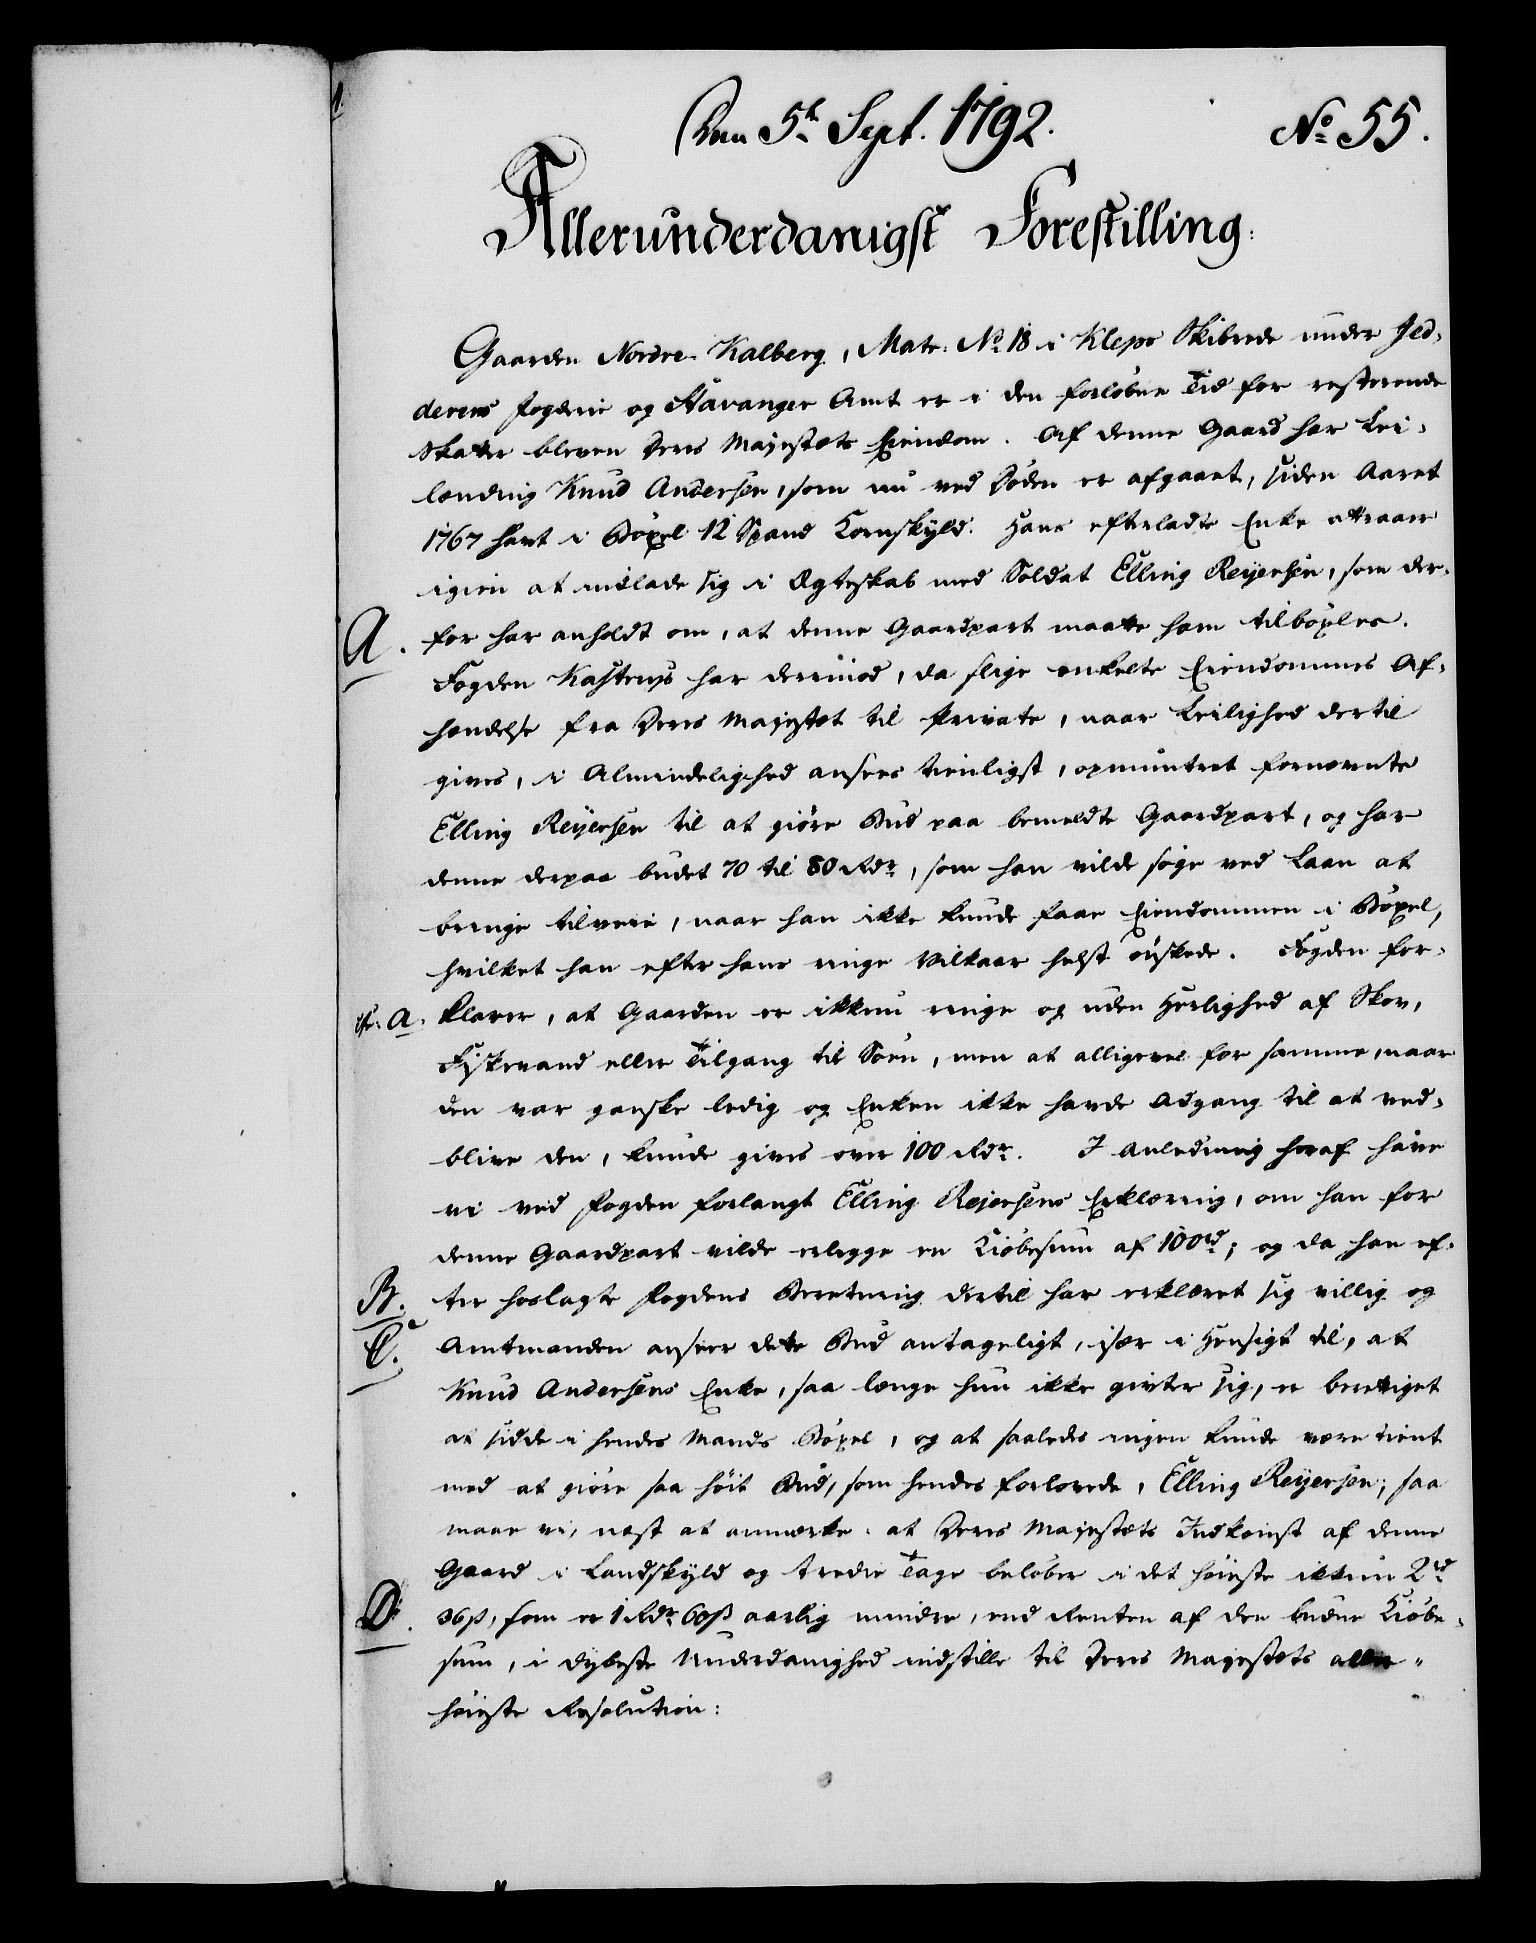 Den 5t Sept. 1792.
No 55.
Allerunderdanigst Forestilling:
Gaarden Nordre Kalberg, Matr: No 18 i Klepe Skibrede under Jed-
derens Fogderie og Stavanger Amt er i den forløbne Tid for resterende
Skatter bleven Deres Majestæts Eiendom. Af denne Gaard har Lei-
lænding Knud Andersen, som nu ved Døden er afgaaet, siden Aaret
1767 havt i Bøxel 12 Spand Kornskyld. Hans efterladte Enke attraaer
igien at indlade sig i Ægteskab med Soldat Elling Reyersen, som der-
A. for har anholdt om, at denne Gaardpart maatte ham tilbøxles.
Fogden Kastrup har derimod, da slige enkelte Eiendommes Af-
hændelse fra Deres Majestæt til Private, naar Leilighed dertil
gives, i Almindelighed ansees tienligst, opmuntret fornævnte
Elling Reyersen til at giøre Bud paa bemeldte Gaardpart, og har
denne derpaa budet 70 til 80 Rdr, som han vilde søge ved Laan at
bringe tilveie, naar han ikke kunde faae Eiendommen i Bøxel,
hvilket han efter hans ringe Vilkaar helst ønskede. Fogden for-
cfr. A. klarer, at Gaarden er ikkun ringe og uden Herlighed af Skov,
Fiskevand eller Tilgang til Søen, men at alligevel for samme, naar
den var ganske ledig og Enken ikke havde Adgang til at ved-
blive den, kunde gives over 100 Rdr. I Anledning heraf have
vi ved Fogden forlangt Elling Rejersens Erklæring, om han for
denne Gaardpart vilde erlegge en Kiøbesum af 100rd; og da han ef-
B. ter hoslagte Fogdens Beretning dertil har erklæret sig villig og
C. Amtmanden anseer dette Bud antageligt, især i Hensigt til, at
Knud Andersens Enke, saa længe hun ikke givter sig, er berettiget
at sidde i hendes Mands Bøxel, og at saaledes ingen kunde være tient
med at giøre saa høit Bud, som hendes forlovede, Elling Reyersen; saa
maae vi, næst at anmærke: at Deres Majestæts Indkomst af denne
Gaard i Landskyld og tredie Tage beløber i det høieste ikkun 2rd
D. 36ß, som er 1 Rdr 60ß aarlig mindre, end Renten af den budne Kiøbe-
sum, i dybeste Underdanighed indstille til Deres Majestæts aller-
høieste Resolution: